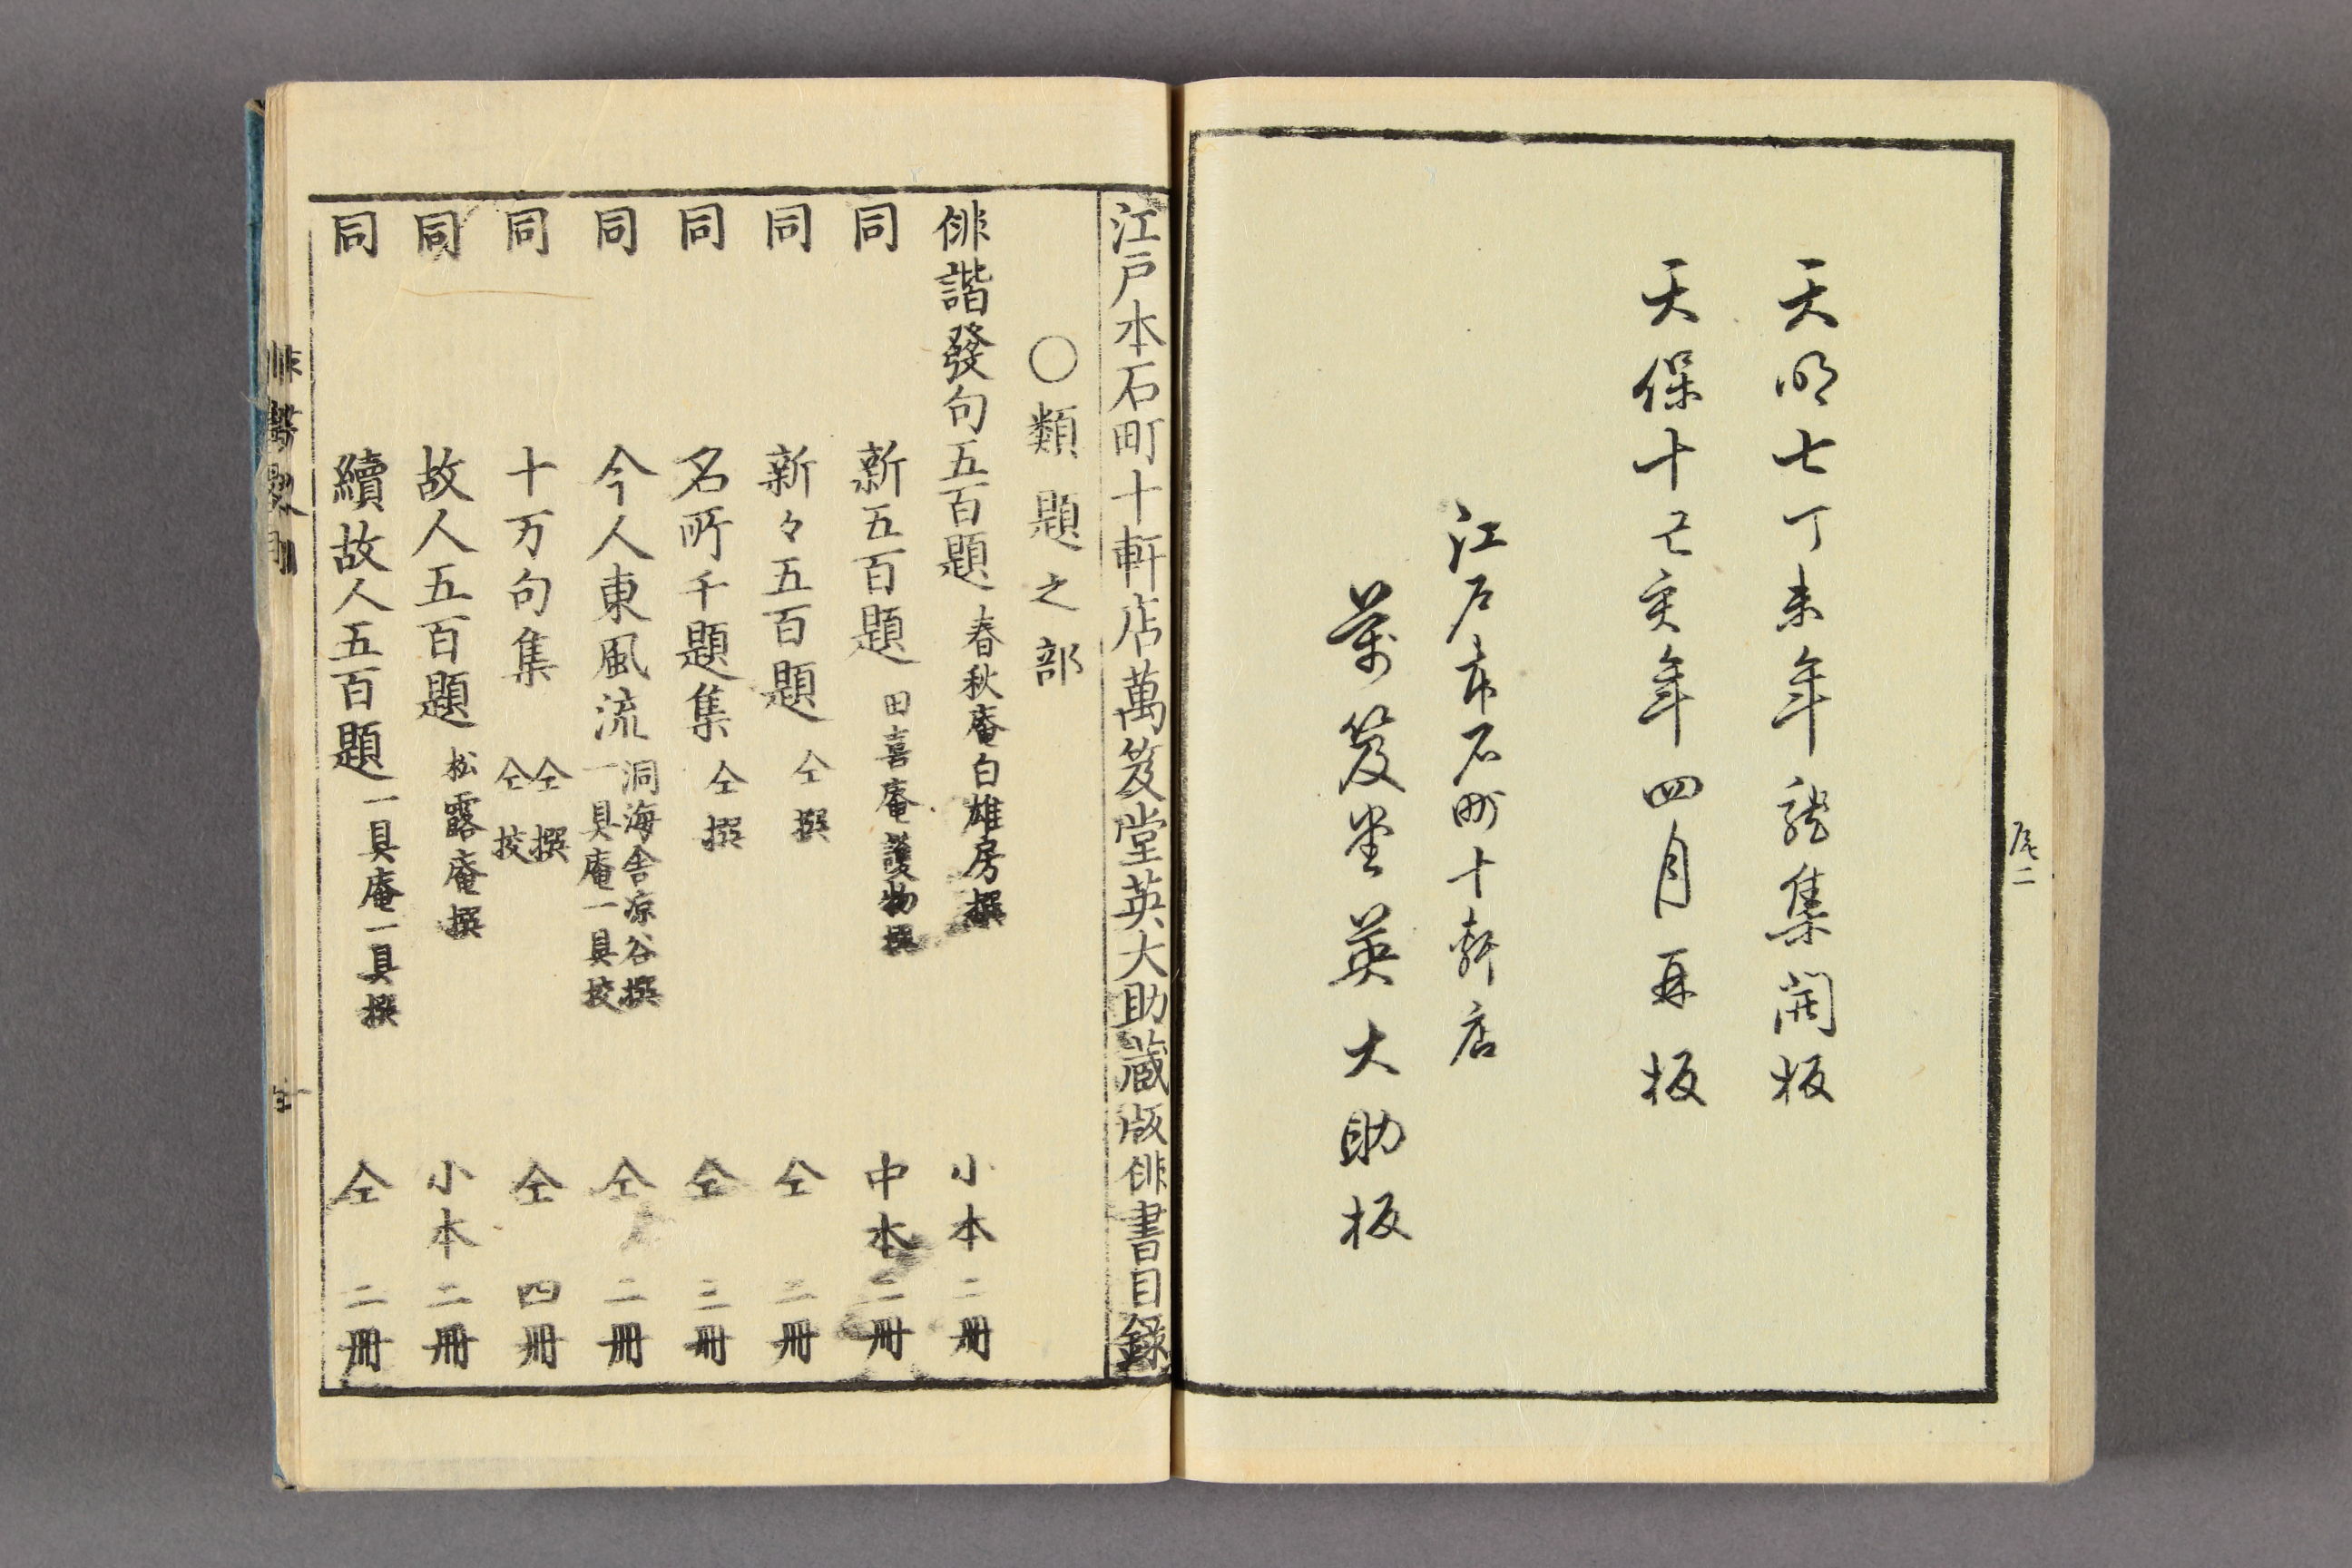 天明七丁未年
集開板
天保十己亥年四月再板
江戸本石町十軒店
萬笈堂英大助板
尾二
江戸本石町十軒店萬笈堂英大助蔵版俳書目録
○類題之部
俳諧發句五百題 春秋庵白雄房撰 小本二冊
同 新五百題 田喜庵護物撰 中本二冊
同 新々五百題 仝撰 仝二冊
同 名所千題集 仝撰 仝三冊
同 今人東風流 洞海舎凉谷撰 一具庵一具校 仝二冊
同 十万句集 仝撰 仝校 仝四冊
同 故人五百題 松露庵撰 小本二冊
同 續故人五百題 一具庵一具撰 仝二冊